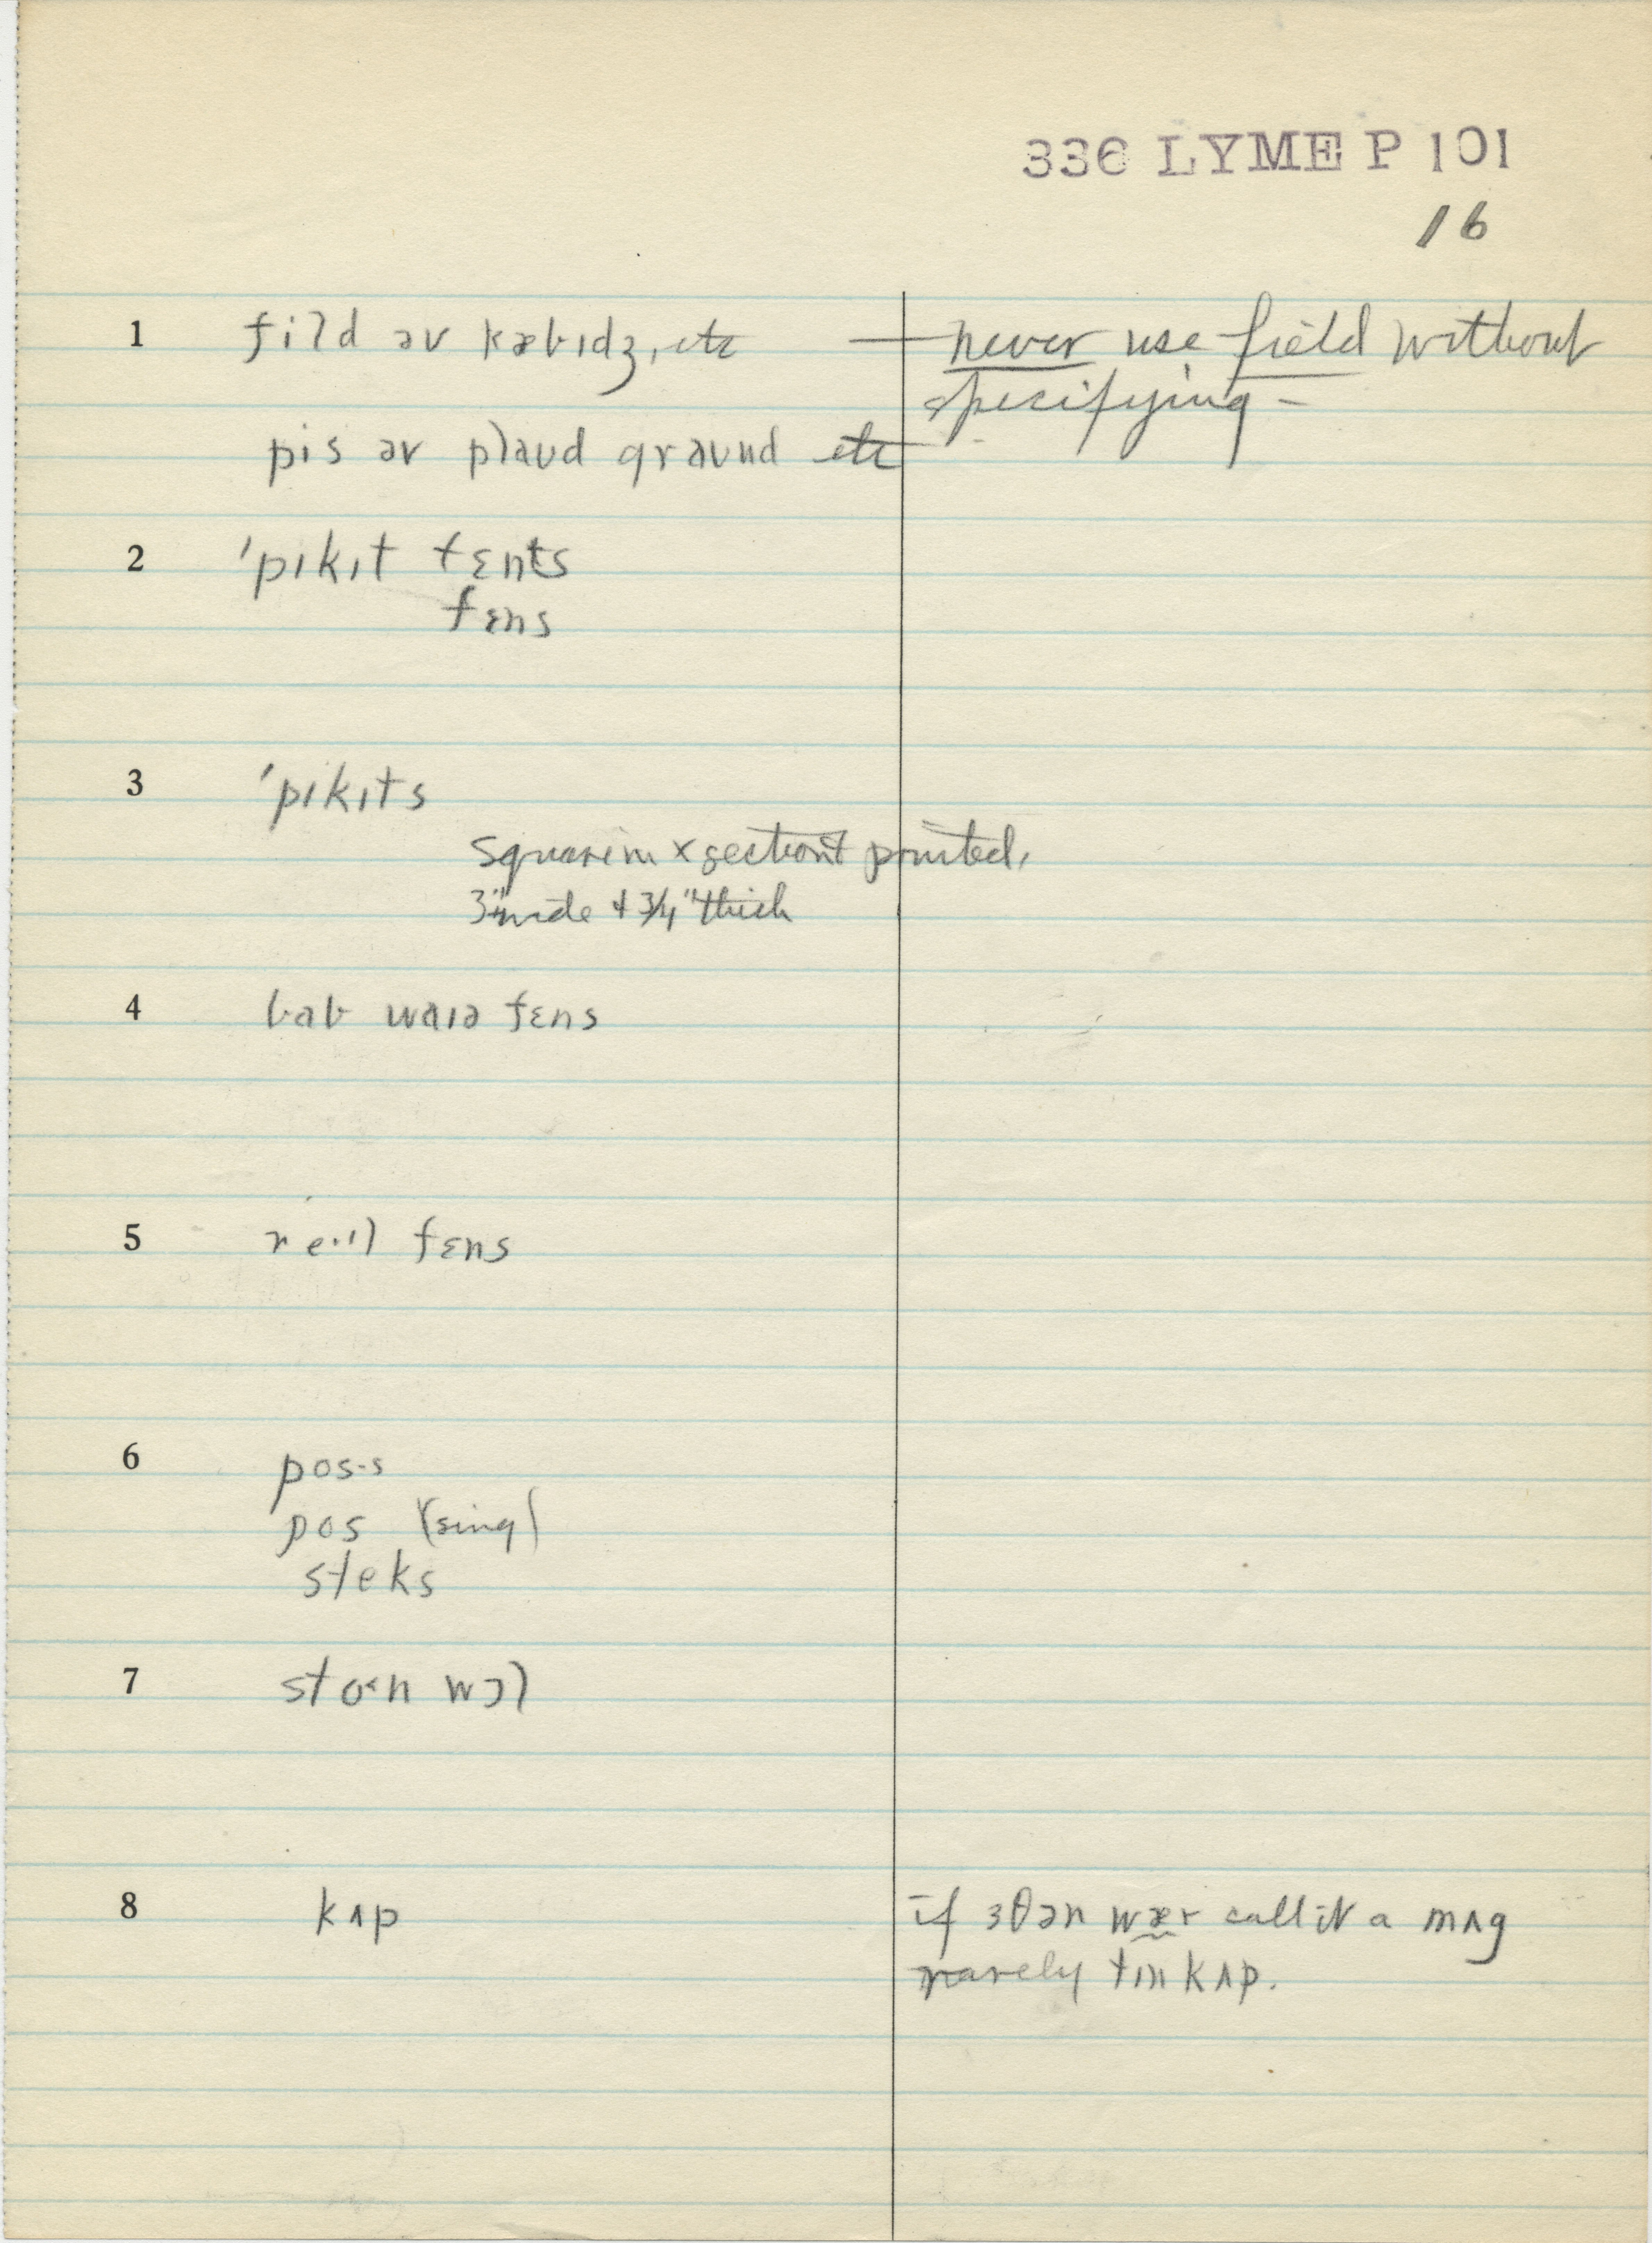 336 LYME P 101
16
1 fild əv kæbɪdʒ, etc — never use field without
specifying –
pis əv plaud graund etc
2 'pɪkɪt fɛnts
fɛns
3 'pɪkɪts
square in x section & pointed,
3" wide & 3/4" thick
4 bab waɪə fɛns
5 re·ɪl fɛns
6 pos·s
pos (sing)
steks
7 sto<n wɔl
8 kʌp if ɜθən wær call it a mʌg
rarely tɪn kʌp.